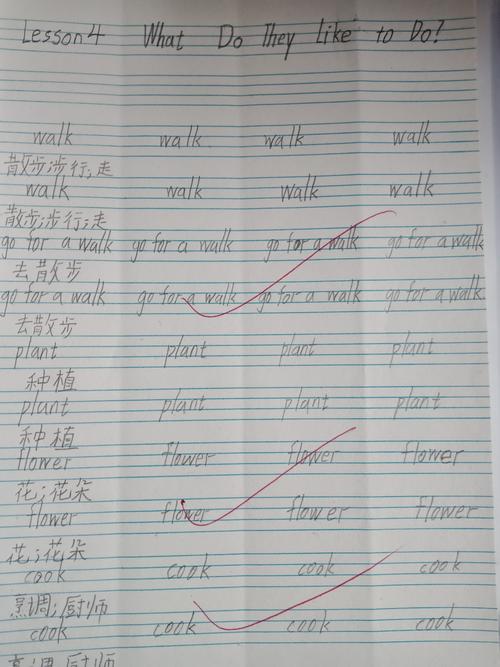 Lesson 4 What Do They Like to Do?
walk walk walk walk
散步;步行;走
walk walk walk walk
散步;步行;走
go for a walk go for a walk go for a walk go for a walk
去散步
go for a walk go for a walk go for a walk go for a walk
去散步
plant plant plant plant
种植
plant plant plant plant
种植
flower flower flower flower
花;花朵
flower flower flower flower
花;花朵
cook cook cook cook
烹调;厨师
cook cook cook cook
烹调;厨师